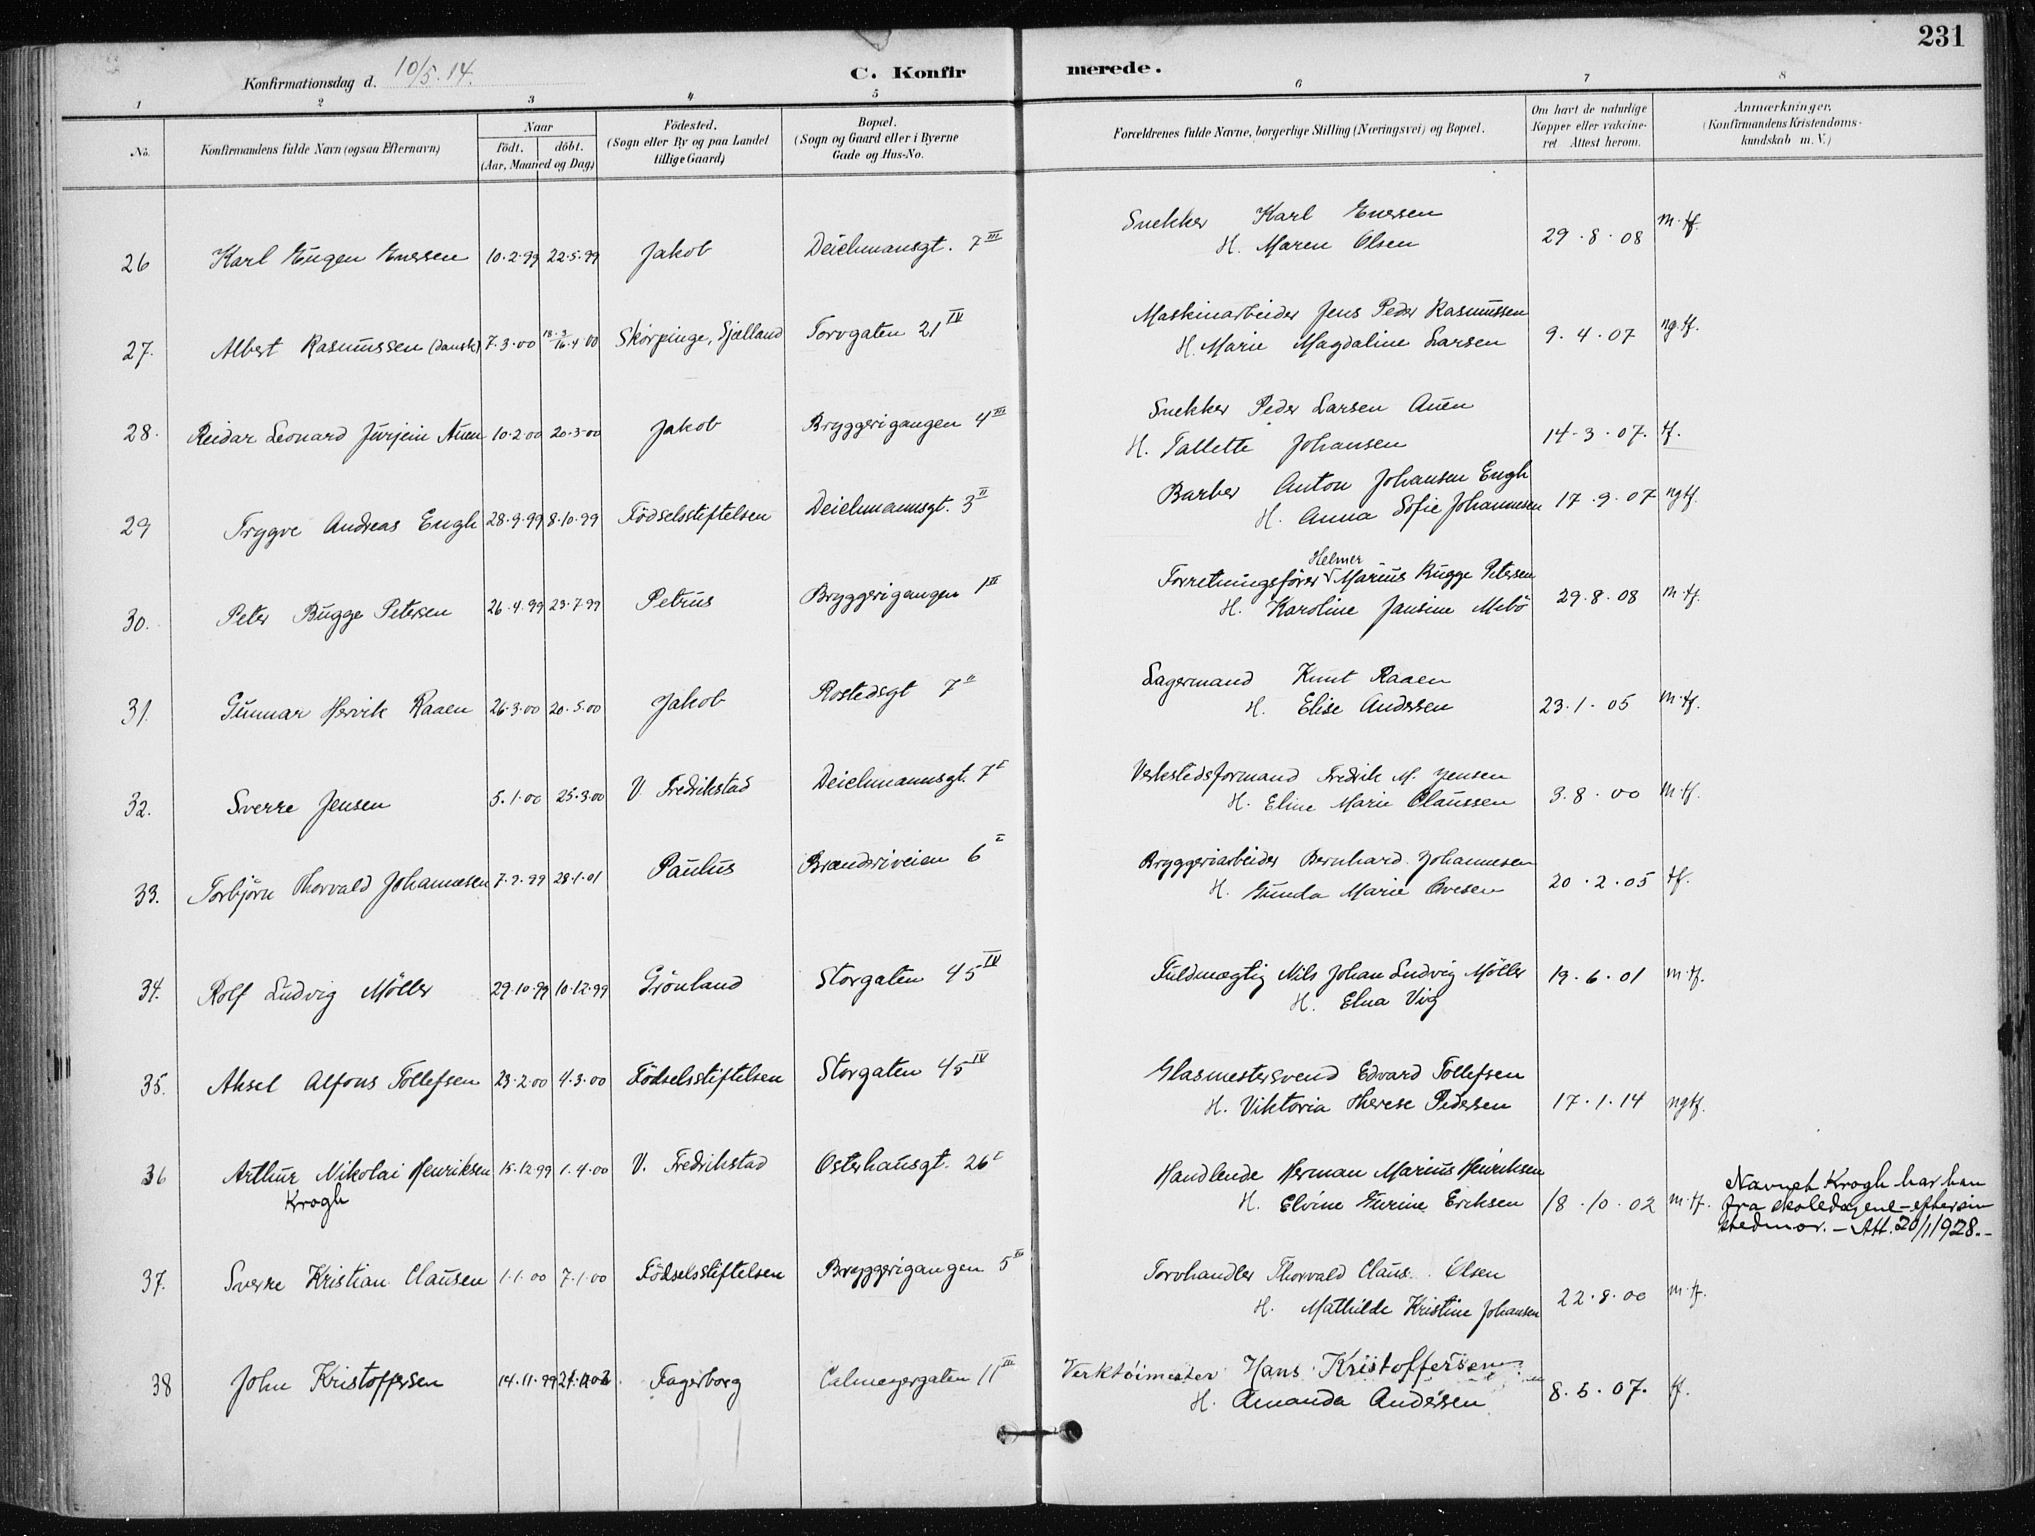 231
Konfirmationsdag d. 10/5. 14.
C. Konfirmerede.
1 2 3 4 5 6 7 8
No.
Konfirmandens fulde Navn (ogsaa Efternavn)
Naar
födt. döbt.
(Aar, Maaned og Dag)
Födested.
(Sogn eller By og paa Landet
tillige Gaard)
Bopæl.
(Sogn og Gaard eller i Byerne
Gade og Hus-No.
Forældrenes fulde Navne, borgerlige Stilling (Næringsvei) og Bopæl.
Om havt de naturlige
Kopper eller vakcine-
ret Attest herom.
Anmærkninger,
(Konfirmandens Kristendoms-
kundskab m. V.)
Snekker Karl Enersen
26 Karl Eugen Enersen 10.2.99 22.5.99 Jakob Deichmansgt. 7 III H. Maren Olsen 29.8.08 m.tf.
Maskinarbeider Jens Peder Rasmussen
27. Albert Rasmussen (dansk) 7.3.00 18.3/16.4.00 Skörpinge, Sjælland Torvgaten 21 IV H. Marie Magdaline Larsen 9.4.07 ng.tf.
Snekker Peder Larsen Auen
28. Reidar Leonard Jürjein Auen 10.2.00 20.3.00 Jakob Bryggerigangen 4 III H. Tallette Johansen 14.3.07. tf.
Barber Anton Johansen Engh
29 Trygve Andreas Engh 28.9.99 8.10.99 Födselsstiftelsen Deichmannsgt. 3 II H. Anna Sofie Johannesen 17.9.07 ngtf.
Helmer
Forretningsfører Marius Bugge Petersen
30. Peter Bugge Petersen 26.4.99 23.7.99 Petrus Bryggerigangen 1 II H. Karoline Jansine Mebö 29.8.08 m.tf.
Lagermand Knut Raaen
31. Gunnar Hervik Raaen 26.3.00 20.5.00 Jakob Rostedsgt 7 II H. Elise Andersen 23.1.05 m.tf.
Verkstedsformand Fredrik M. Jensen
32. Sverre Jensen 5.1.00 25.3.00 V. Fredrikstad Deichmannsgt. 7 I H. Eline Marie Claussen 3.8.00 m.tf.
Bryggeriarbeider Bernhard Johannesen
33. Torbjörn Thorvald Johannesen 7.2.99 28.1.01 Paulus Brænderiveien 6 I H. Gunda Marie Ovesen 20.2.05 tf.
Fuldmægtig Nils Johan Ludvig Möller
34. Rolf Ludvig Möller 29.10.99 10.12.99 Grönland Storgaten 45 IV H. Elna Vig 19.6.01 m.tf.
Glasmestersvend Edvard Tollefsen
35. Aksel Alfons Tollefsen 23.2.00 4.3.00 Födselsstiftelsen Storgaten 45 IV H. Viktoria Therese Pedersen 17.1.14 ngtf.
Handlende Herman Marius Henriksen
36 Arthur Nikolai Henriksen 15.12.99 1.4.00 V. Fredrikstad Osterhausgt. 26 I H. Elvine Gurine Eriksen 18.10.02 m.tf.
Krogh
Navnet Krogh har han
fra skoledagene – efter sin
stedmor. – Att. 20/1 1928. –
Torvhandler Thorvald Claus Olsen
37. Sverre Kristian Clausen 1.1.00 7.1.00 Födselsstiftelsen Bryggerigangen 5 III H. Mathilde Kristine Johansen 22.8.00 m.tf.
Verktöimester Hans Kristoffersen
38 John Kristoffersen 14.11.99 Fagerborg Calmeyergaten 11 III H. Amanda Andersen 8.5.07. tf.